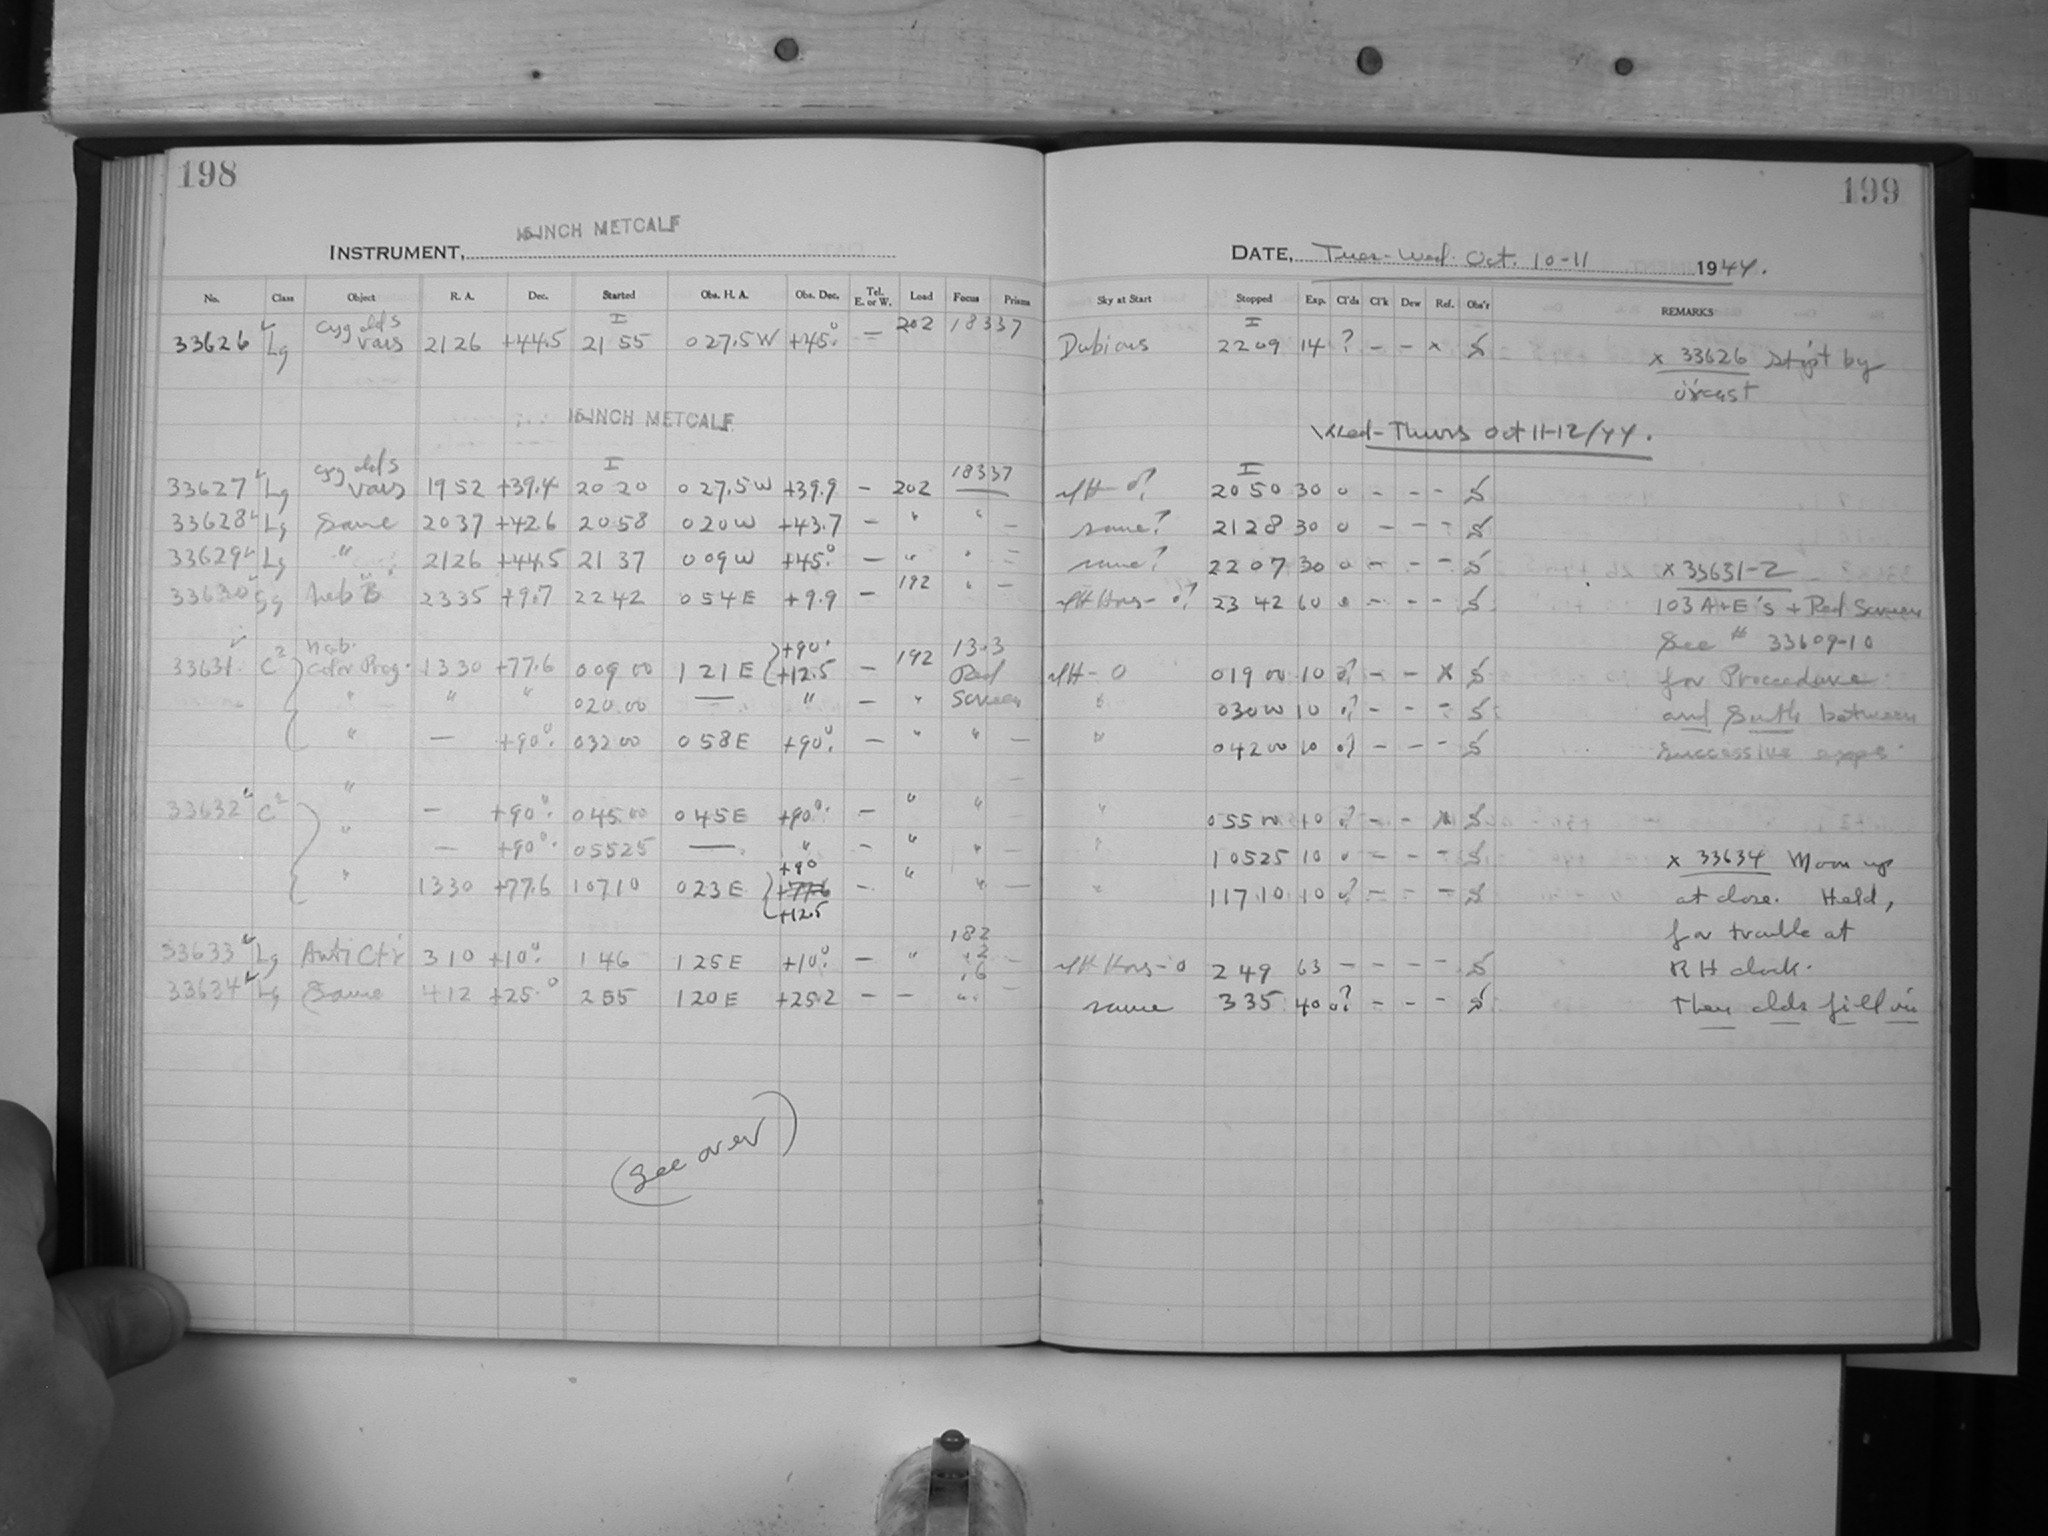 198
199
16-INCH METCALF
INSTRUMENT,
DATE, Tues-Wed. Oct. 10-11 1944.
No. Class Object R. A. Dec. Started Obs. H. A. Obs. Dec. Tel. E. or W. Load Focus Prisms Sky at Start Stopped Exp. Cl'ds Cl'k Dew Ref. Obs'r REMARKS
33626 Lg Cyg clds vars 2126 +44.5 I 21 55 0 27.5 W +45° — 202 18337 Dubious I 2209 14 ? - - x x 33626 Stop't by
o'rcast
16-INCH METCALF
Wed-Thurs Oct 11-12/44.
33627 Lg Cyg clds vars 1952 +39.4 I 20 20 0 27.5 W +39.9 - 202 18337 I 20 50 30 0 - - -
33628 Lg Same 2037 +42.6 20 58 0 20 W +43.7 - " " - same? 21 28 30 0 - - -
33629 Lg " 2126 +44.5 21 37 0 09 W +45° - " " - same? 22 07 30 0 - - - x 33631-2
33630 2335 +9.7 22 42 0 54 E +9.9 - 192 " - 23 42 60 0 - - - 103 A+E's + Red Screen
See # 33609-10
33631 C2 Color Prog. 1330 +77.6 009 00 1 21 E +90° +12.5 - 192 13.3 Red 019 00 10 0? - - x for Procedure
" " " 020.00 — " - " Screen " 030 00 10 0? - - - and South between
" — +90° 032 00 0 58 E +90° - " " - " 042 00 10 0? - - - successive exps.
33632 C2 " — +90° 045.00 0 45 E +90° - " " - " 055 00 10 0? - - x
" — +90° 05525 — " - " " - " 10525 10 0 - - - x 33634 Moon up
" 1330 +77.6 10710 0 23 E +90 +77.6 +12.5 - " " - " 11710 10 0? - - - at close. Held,
for trouble at
33633 Lg Anti Ctr 3 10 +10° 1 46 1 25 E +10° - " 182 .2 .6 - 2 49 63 - - - - RH clock.
33634 Lg Same 4 12 +25° 2 55 1 20 E +25.2 - - " - same 3 35 40 0? - - - Then clds fill in
(See over)